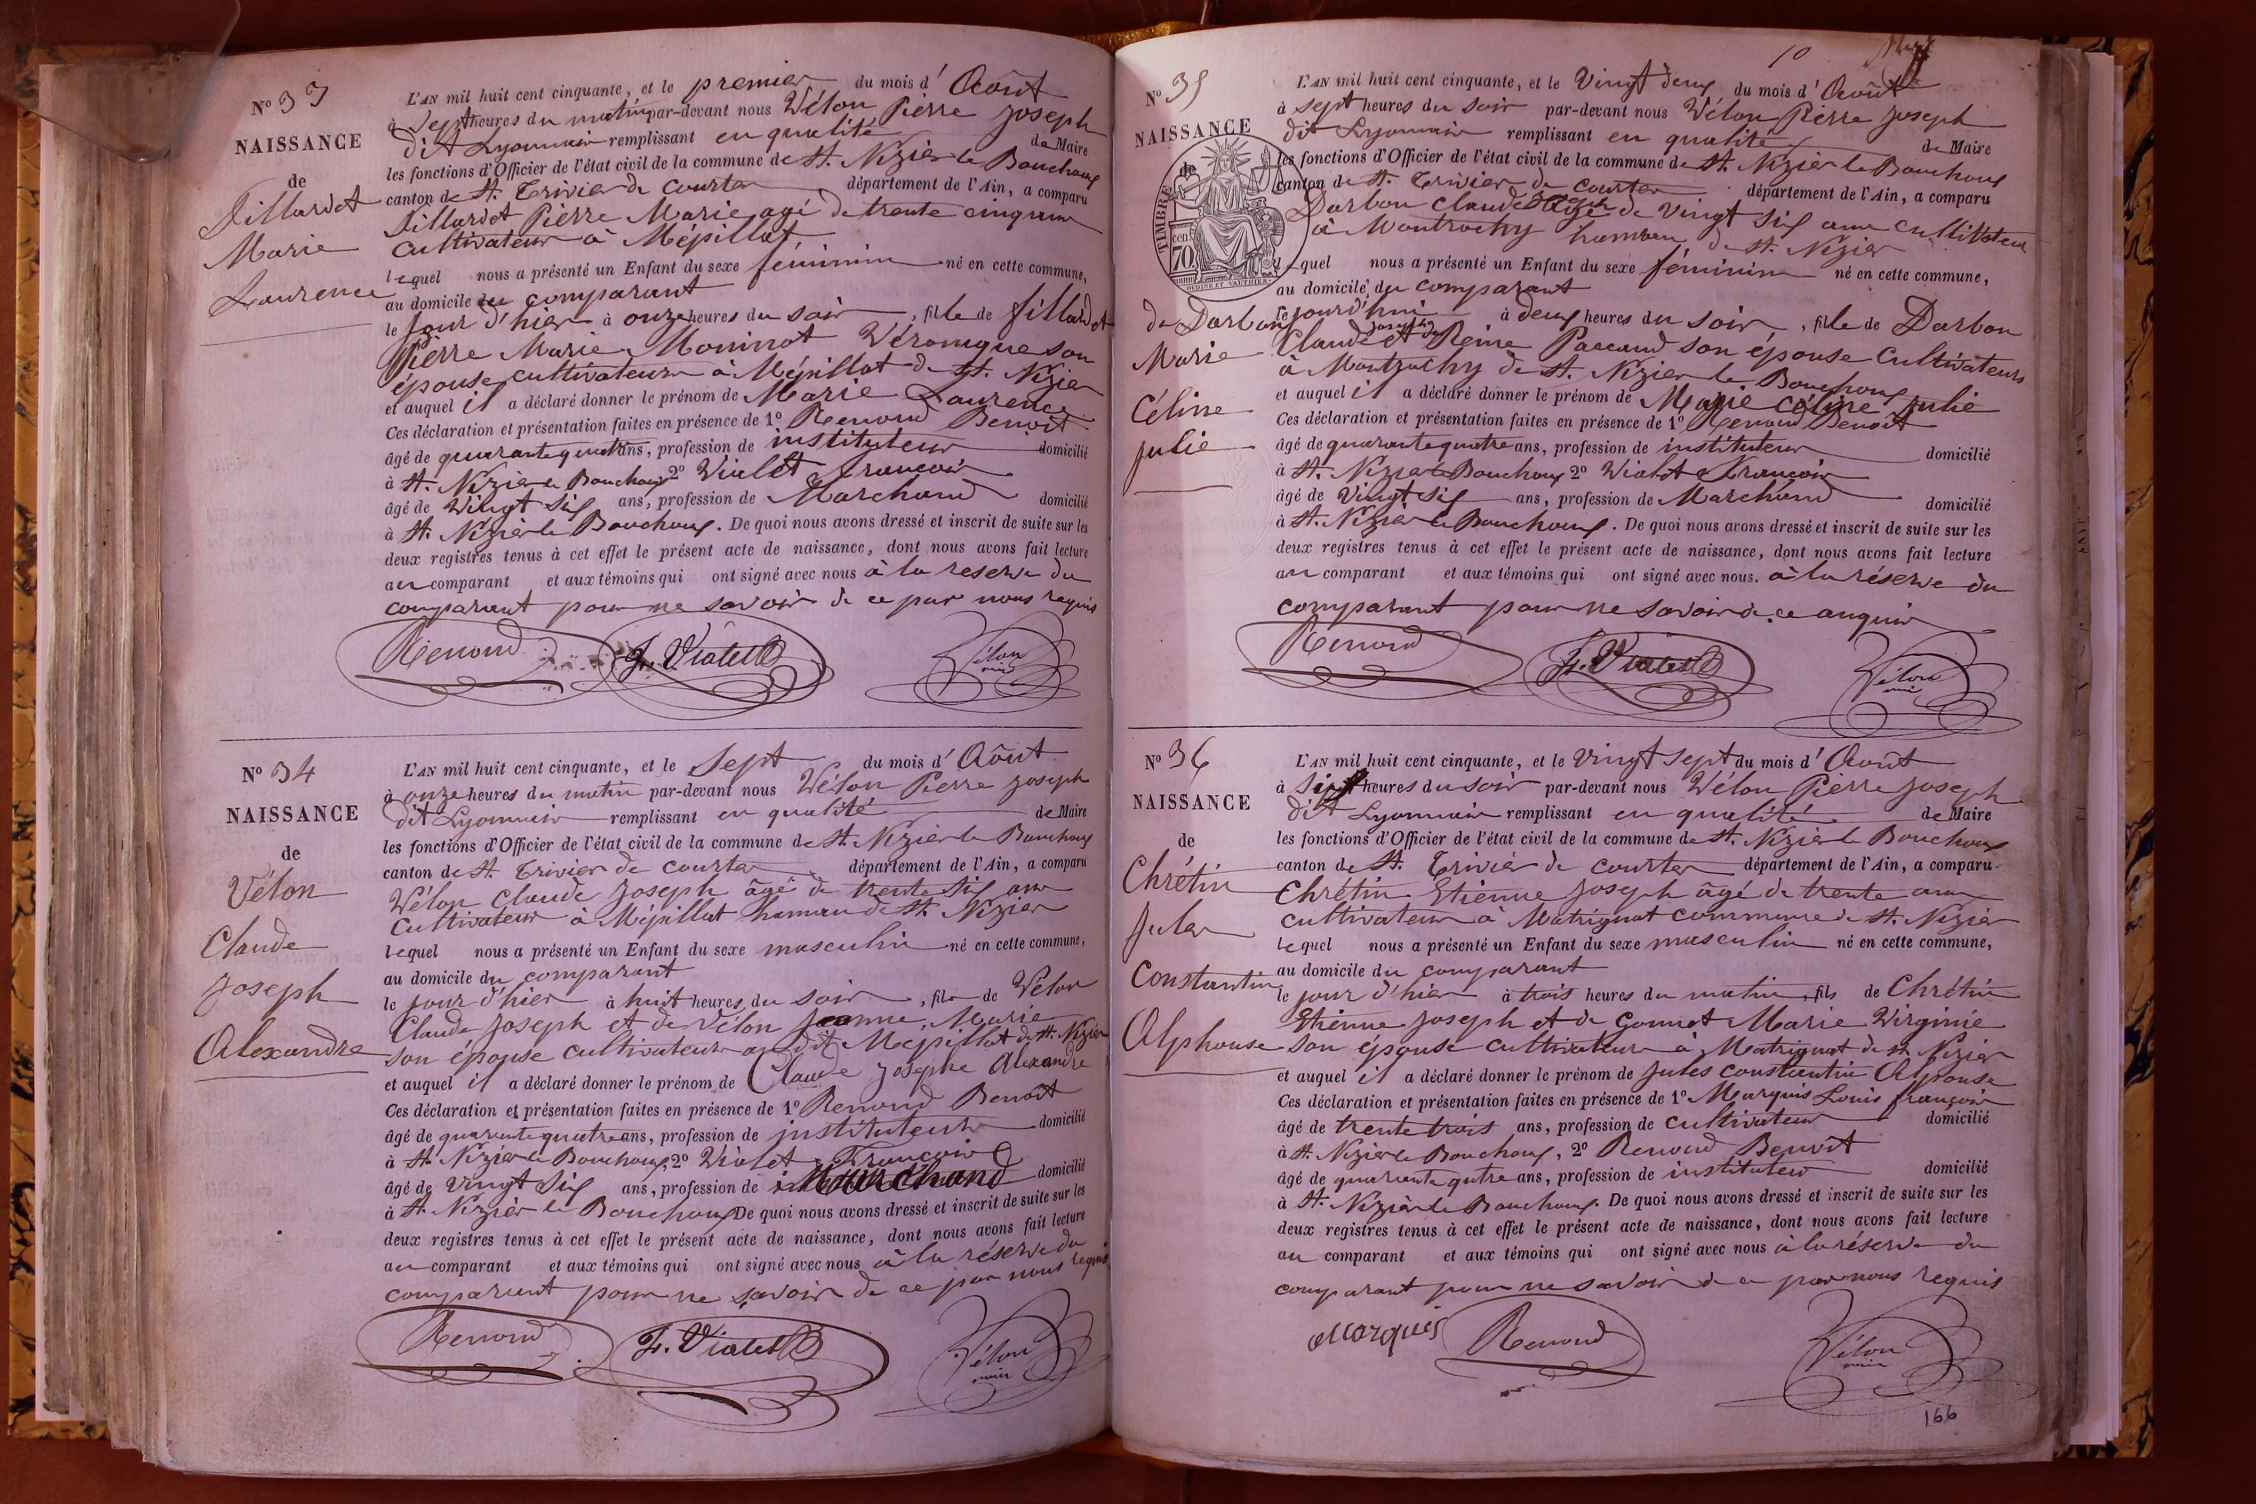 N° 33
NAISSANCE
de
Fillardet
Marie
Laurence
L'AN mil huit cent cinquante, et le premier du mois d'Août
à sept heures du matin par-devant nous Vélon Pierre Joseph
dit Lyonnais remplissant en qualité de Maire
les fonctions d'Officier de l'état civil de la commune de St. Nizier le Bouchoux
canton de St. Trivier de Courtes département de l'Ain, a comparu
Fillardet Pierre Marie agé de trente cinq ans
Cultivateur à Mépillat
lequel nous a présenté un Enfant du sexe féminin né en cette commune,
au domicile du comparant
le jour d'hier à onze heures du soir, fille de fillardet
Pierre Marie Moninot Véronique son
épouse cultivateurs à Mépillat de St. Nizier
et auquel il a déclaré donner le prénom de Marie Laurence
Ces déclaration et présentation faites en présence de 1° Renoud Benoit
âgé de quarante quatre ans, profession de instituteur domicilié
à St. Nizier le Bouchoux 2° Vialet françois
âgé de Vingt six ans, profession de Marchand domicilié
à St. Nizier le Bouchoux. De quoi nous avons dressé et inscrit de suite sur les
deux registres tenus à cet effet le présent acte de naissance, dont nous avons fait lecture
au comparant et aux témoins qui ont signé avec nous à la reserve du
comparant pour ne savoir de ce par nous requis
Renoud F. Vialet Vélon
maire
N° 34
NAISSANCE
de
Vélon
Claude
Joseph
Alexandre
L'AN mil huit cent cinquante, et le Sept du mois d'Août
à onze heures du matin par-devant nous Vélon Pierre Joseph
dit Lyonnais remplissant en qualité de Maire
les fonctions d'Officier de l'état civil de la commune de St. Nizier le Bouchoux
canton de St. Trivier de courtes département de l'Ain, a comparu
Vélon Claude Joseph âgé de trente six ans
Cultivateur à Mépillat hameau de St. Nizier
lequel nous a présenté un Enfant du sexe masculin né en cette commune,
au domicile du comparant
le jour d'hier à huit heures du soir, fils de Vélon
Claude Joseph et de Vélon Jeanne Marie
son épouse cultivateurs au dit Mépillat de St. Nizier
et auquel il a déclaré donner le prénom de Claude Josephe Alexandre
Ces déclaration et présentation faites en présence de 1° Renoud Benoit
âgé de quarante quatre ans, profession de instituteur domicilié
à St. Nizier le Bouchoux, 2° Vialet François
âgé de vingt six ans, profession de Marchand domicilié
à St. Nizièr le Bouchoux De quoi nous avons dressé et inscrit de suite sur les
deux registres tenus à cet effet le présent acte de naissance, dont nous avons fait lecture
au comparant et aux témoins qui ont signé avec nous à la réserve du
comparant pour ne savoir de ce par nous requis
Renoud F. Vialet Vélon
maire
10
N° 35
NAISSANCE
de
TIMBRE
70
de Darbon
Marie
Céline
Julie
L'AN mil huit cent cinquante, et le Vingt deux du mois d'Août
à sept heures du soir par-devant nous Vélon Pierre Joseph
dit Lyonnais remplissant en qualité de Maire
les fonctions d'Officier de l'état civil de la commune de St. Nizier le Bouchoux
canton de St. Trivier de courtes département de l'Ain, a comparu
Darbon Claude Joseph agé de vingt six ans cultivateur
à Montrachy hameau de St. Nizier
lequel nous a présenté un Enfant du sexe féminin né en cette commune,
au domicile du comparant
le jourd'hui à deux heures du soir, fille de Darbon
Claude Joseph et de Reine Paccaud son épouse Cultivateurs
à Montrachy de St. Nizier le Bouchoux
et auquel il a déclaré donner le prénom de Marie Céline Julie
Ces déclaration et présentation faites en présence de 1° Renoud Benoit
âgé de quarante quatre ans, profession de instituteur domicilié
à St. Nizier le Bouchoux 2° Vialet François
âgé de Vingt six ans, profession de Marchand domicilié
à St. Nizier le Bouchoux. De quoi nous avons dressé et inscrit de suite sur les
deux registres tenus à cet effet le présent acte de naissance, dont nous avons fait lecture
au comparant et aux témoins qui ont signé avec nous. à la réserve du
comparant pour ne savoir de ce enquis
Renoud F. Vialet Vélon
maire
N° 36
NAISSANCE
de
Chrétin
Jules
Constantin
Alphonse
L'AN mil huit cent cinquante, et le vingt sept du mois d'Août
à six heures du soir par-devant nous Vélon Pierre Joseph
dit Lyonnais remplissant en qualité de Maire
les fonctions d'Officier de l'état civil de la commune de St. Nizier le Bouchoux
canton de St. Trivièr de Courtes département de l'Ain, a comparu
Chrétin Etienne Joseph âgé de trente ans
cultivateur à Matrignat commune de St. Nizièr
lequel nous a présenté un Enfant du sexe masculin né en cette commune,
au domicile du comparant
le jour d'hier à trois heures du matin, fils de Chrétin
Etienne Joseph et de Gonnet Marie Virginie
son épouse cultivateurs à Matrignat de St. Nizier
et auquel il a déclaré donner le prénom de Jules Constantin Alponse
Ces déclaration et présentation faites en présence de 1° Marquis Louis françois
âgé de trente trois ans, profession de cultivateur domicilié
à St. Nizier le Bouchoux, 2° Renoud Benoît
âgé de quarante qutre ans, profession de instituteur domicilié
à St. Nizièr le Bouchoux. De quoi nous avons dressé et inscrit de suite sur les
deux registres tenus à cet effet le présent acte de naissance, dont nous avons fait lecture
au comparant et aux témoins qui ont signé avec nous à la réserve du
comparant pour ne savoir de ce par nous requis
Marquis Renoud Vélon
maire
166